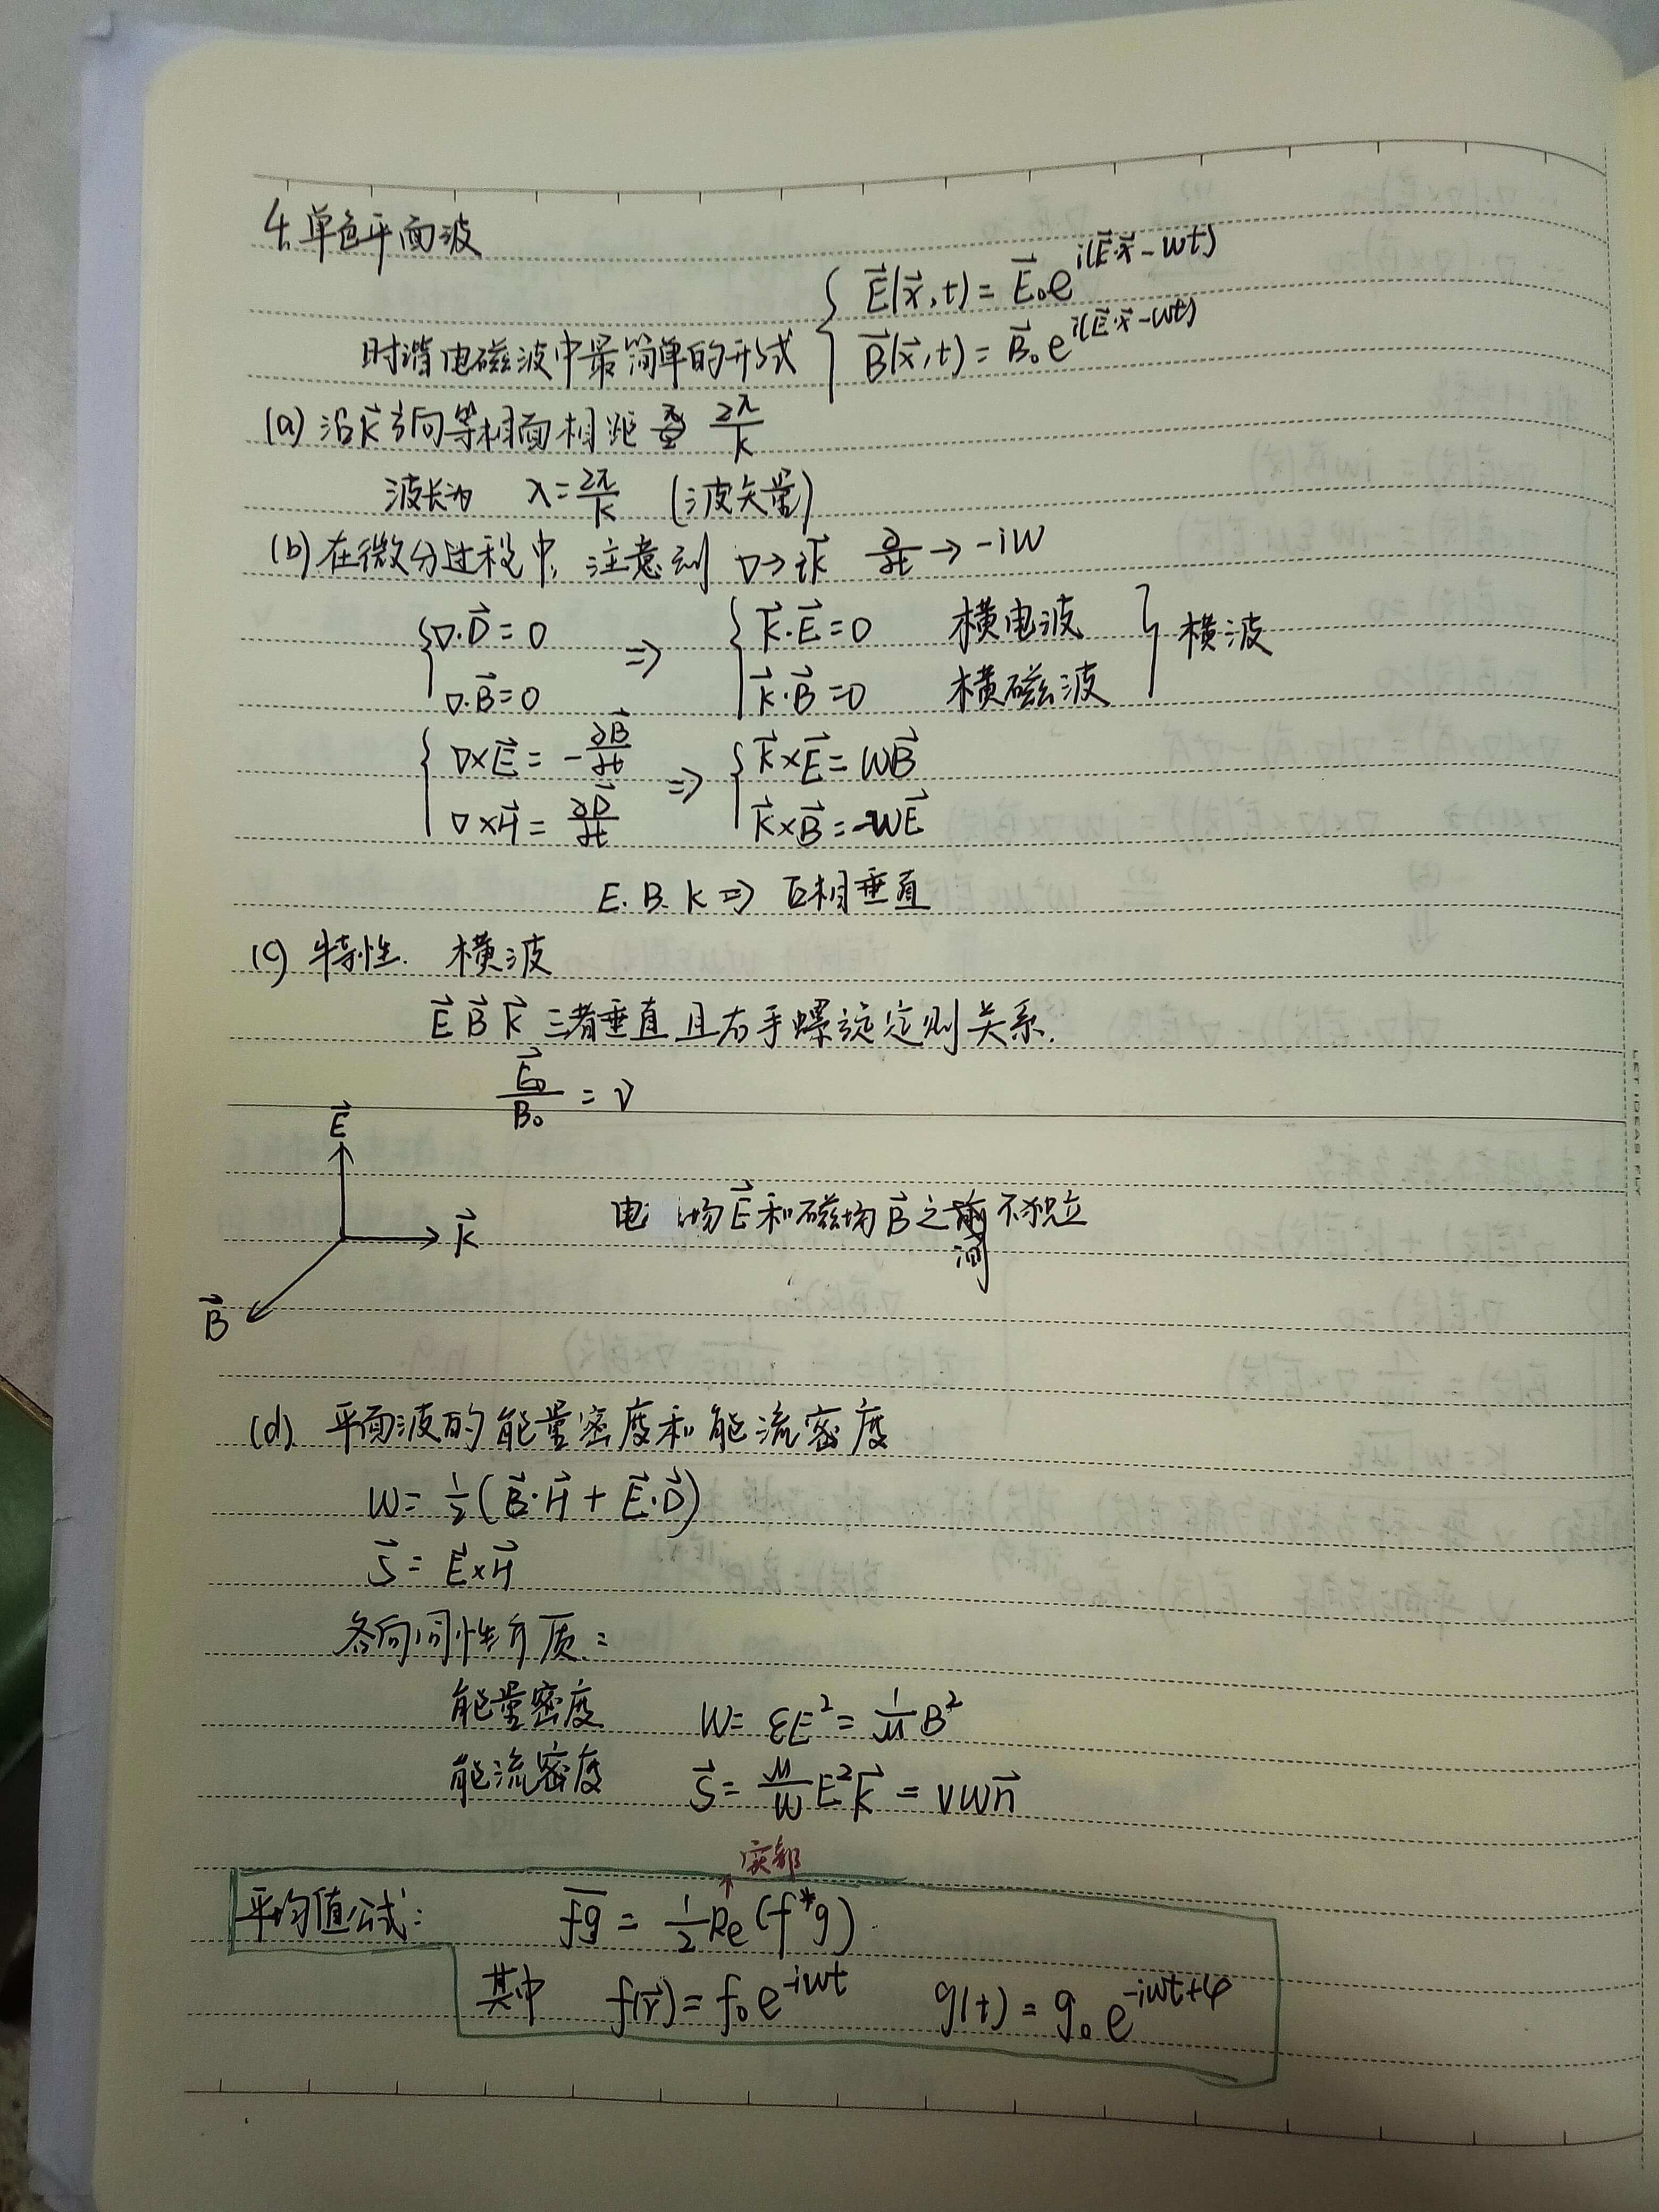 4. 单色平面波
时谐电磁波中最简单的形式 { E⃗(x⃗,t) = E⃗₀e^{i(k⃗·x⃗-wt)}
B⃗(x⃗,t) = B⃗₀e^{i(k⃗·x⃗-wt)}
(a) 沿k⃗方向等相面相距 2π/k
波长为 λ=2π/k (波矢量)
(b) 在微分过程中, 注意到 ∇→ik⃗ ∂/∂t → -iw
{ ∇·D⃗ = 0 ⇒ { k⃗·E⃗=0 横电波 } 横波
∇·B⃗=0 k⃗·B⃗=0 横磁波
{ ∇×E⃗ = -∂B⃗/∂t ⇒ { k⃗×E⃗= wB⃗
∇×H⃗ = ∂D⃗/∂t k⃗×B⃗=-wE⃗
E. B. k ⇒ 互相垂直
(c) 特性. 横波
E⃗ B⃗ k⃗ 三者垂直且右手螺旋定则关系.
E⃗₀/B₀ = v
E⃗
k⃗
B⃗
电场E⃗和磁场B⃗之间不独立
(d) 平面波的能量密度和能流密度
W= ½(B⃗·H⃗ + E⃗·D⃗)
S⃗ = E⃗×H⃗
各向同性介质:
能量密度 W= εE² = 1/μ B²
能流密度 S⃗= μ/w E²k⃗ = vwn⃗
实部
平均值公式: f̅g̅ = ½Re(f*g).
其中 f(r⃗) = f₀e^{-iwt} g(t) = g₀e^{-iwt+φ}
LET IDEAS FLY